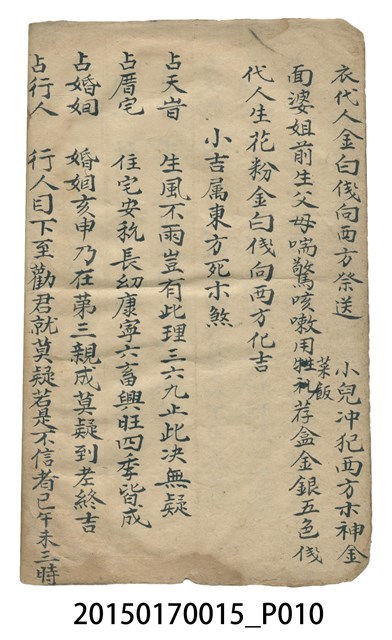 衣代人金白伐向西方祭送 小兒冲犯西方木神金
面婆姐前生父母喘驚咳嗽用牲礼菜飯荐盒金銀五色伐
代人生花粉金白伐向西方化吉
小吉属東方死木煞
占天旹 生風不雨豈有此理三六九止此决無疑
占厝宅 住宅安稳長幼康寧六畜興旺四季皆成
占婚姻 婚姻亥申乃在第三親成莫疑到老終吉
占行人 行人目下至勸君就莫疑若是不信者巳午未三時
20150170015_P010